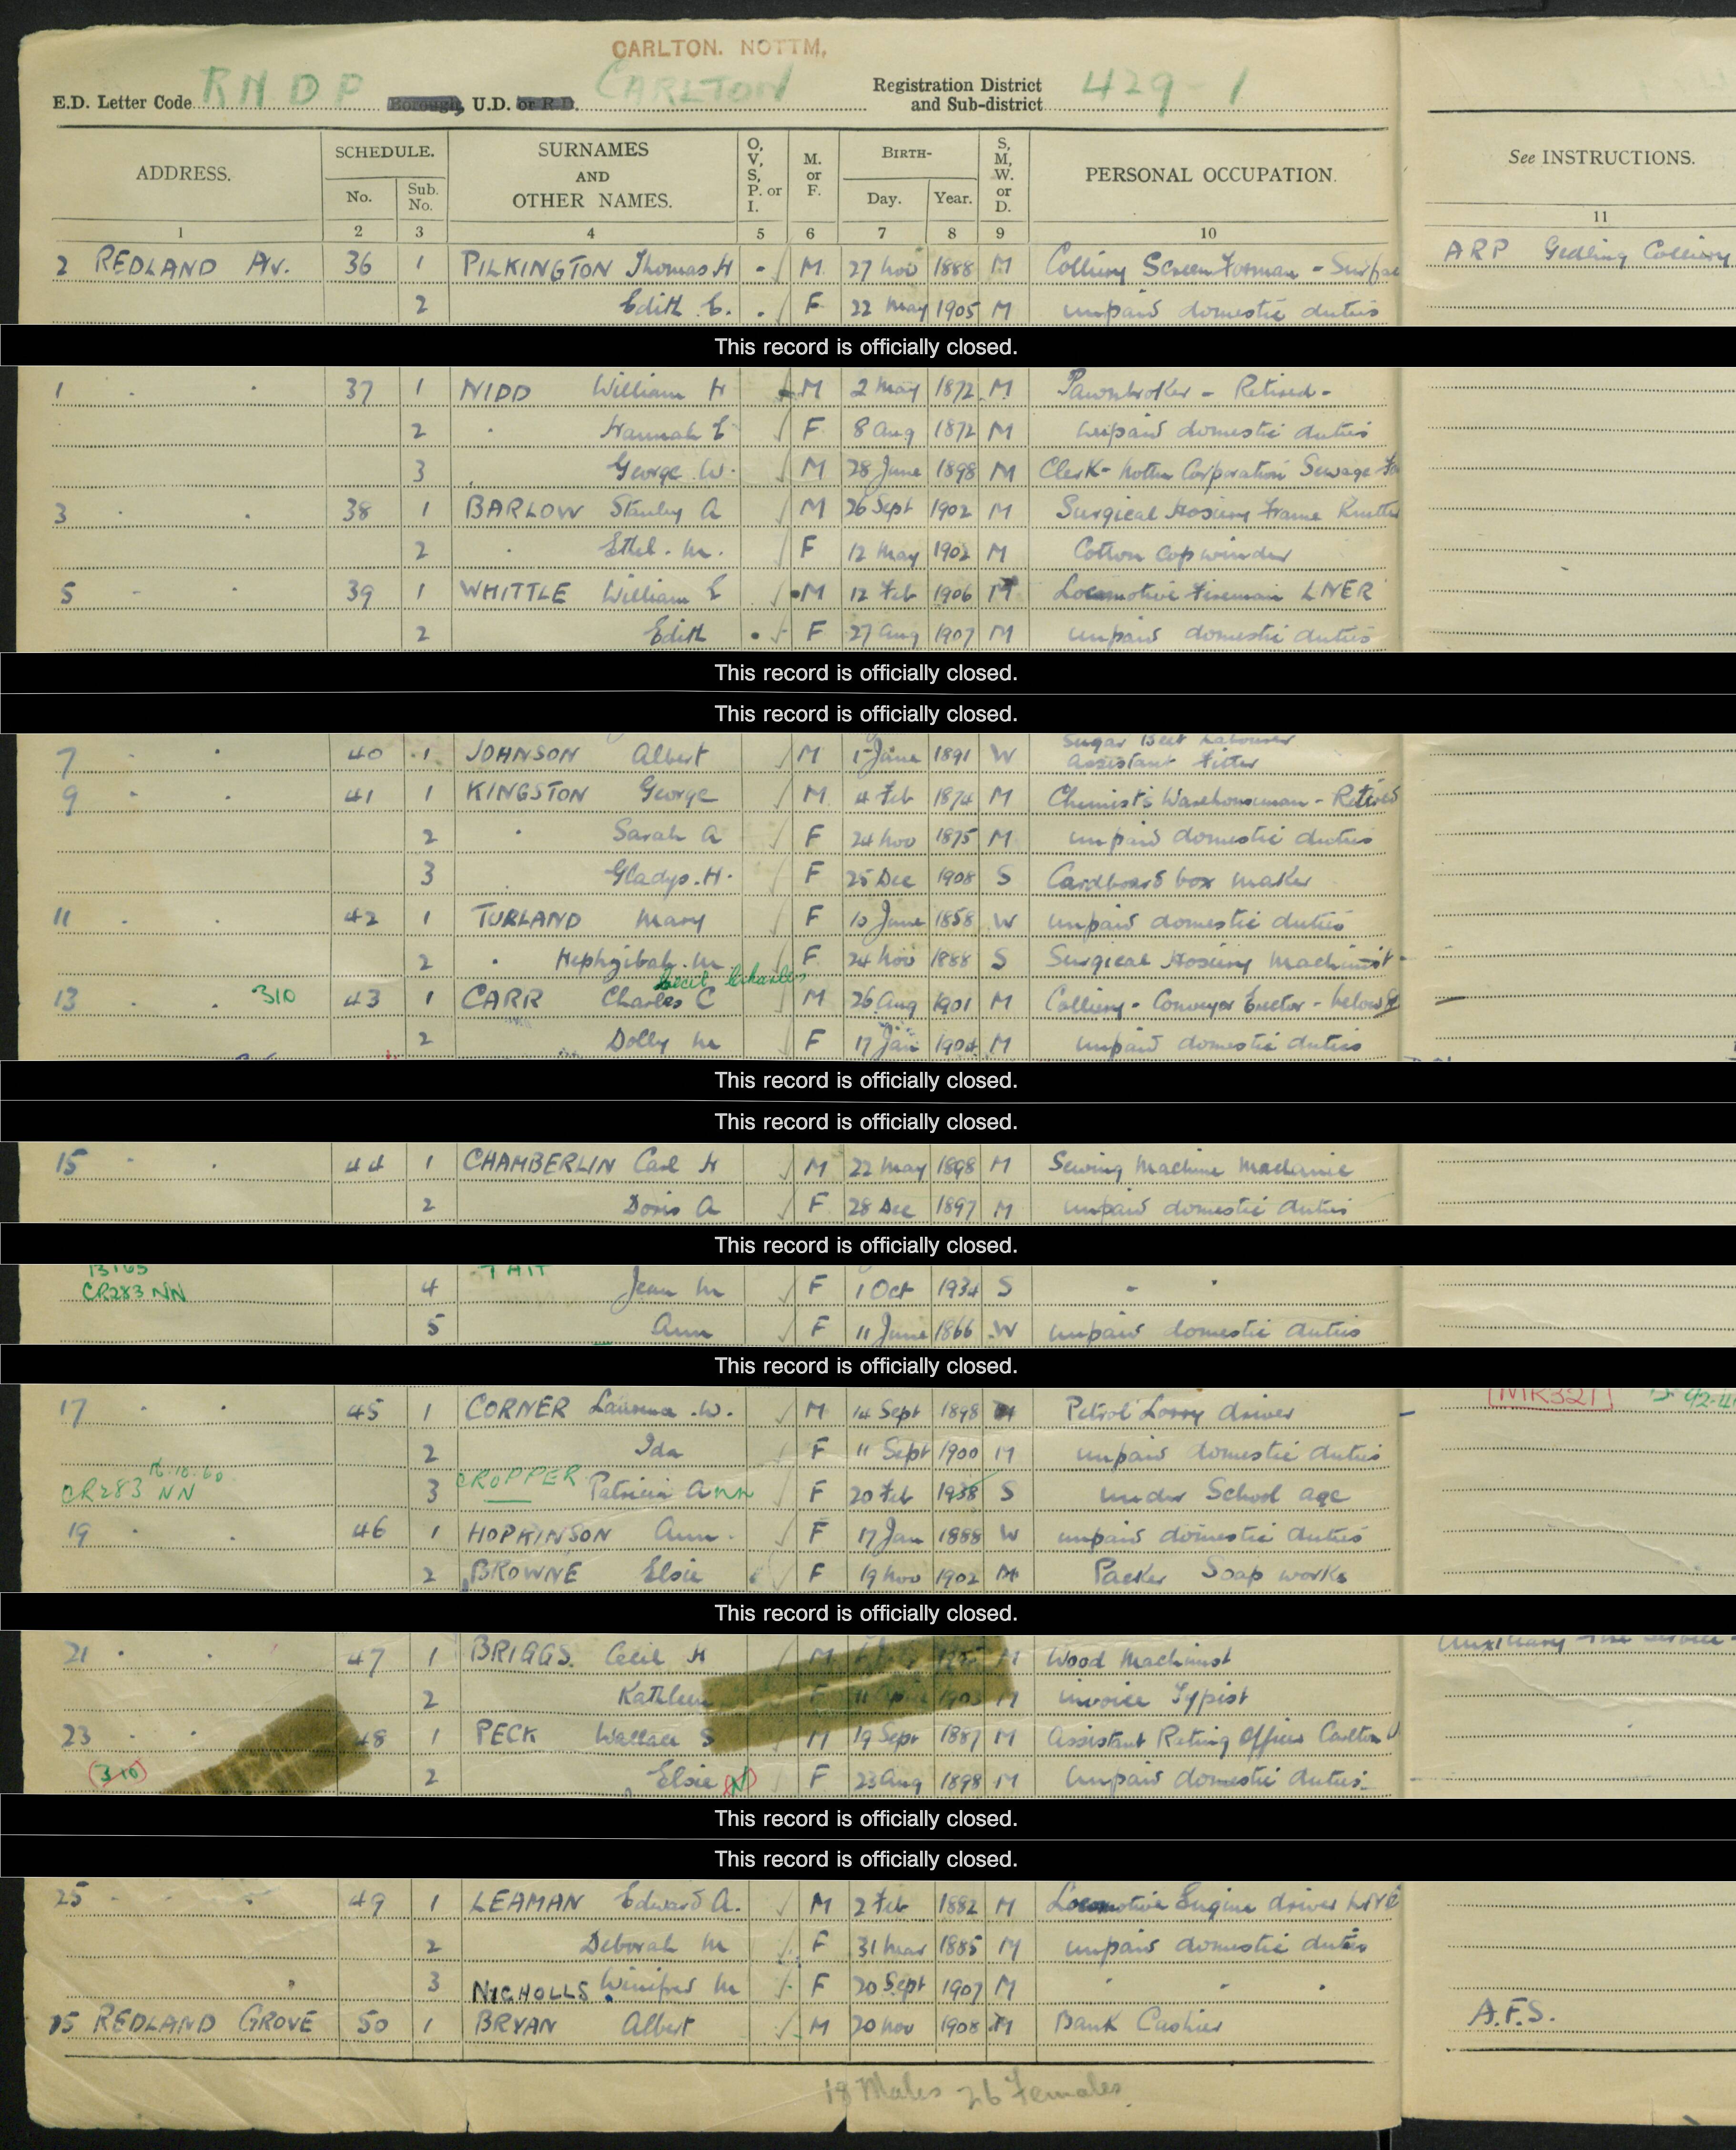 CARLTON. NOTTM,
E.D. Letter Code RNDP Borough, U.D. or R.D. CARLTON Registration District and Sub-district 429-1
ADDRESS. SCHEDULE. No. Sub. No. SURNAMES AND OTHER NAMES. O, V, S, P. or I. M. or F. BIRTH- Day. Year. S, M, W. or D. PERSONAL OCCUPATION. See INSTRUCTIONS.
1 2 3 4 5 6 7 8 9 10 11
2 REDLAND Av. 36 1 PILKINGTON Thomas H M 27 Nov 1888 M Colliery Screen Forman - ARP Gedling Colliery
2 Edith E. F 22 May 1905 M unpaid domestic duties
This record is officially closed.
1 37 1 NIDD William H M 2 May 1872 M Pawnbroker - Retired -
2 Hannah E F 8 Aug 1872 M unpaid domestic duties
3 George W. M 28 June 1898 M Clerk - Nottm Corporation Sewage
3 38 1 BARLOW Stanley A M 26 Sept 1902 M Surgical Hosiery Frame
2 Ethel. M. F 12 May 1902 M Cotton Cop winder
5 39 1 WHITTLE William E M 12 Feb 1906 M Locomotive Fireman LNER
2 Edith F 27 Aug 1907 M unpaid domestic duties
This record is officially closed.
This record is officially closed.
7 40 1 JOHNSON Albert M 1 June 1891 W Sugar Beet Labourer
Assistant Fitter
9 41 1 KINGSTON George M 4 Feb 1874 M Chemist's Warehouseman - Retired
2 Sarah A F 24 Nov 1875 M unpaid domestic duties
3 Gladys. H. F 25 Dec 1908 S Cardboard box maker
11 42 1 TURLAND Mary F 10 June 1858 W unpaid domestic duties
2 Hephzibah. M F 24 Nov 1888 S Surgical Hosiery Machinist
Cecil Charles
13 310 43 1 CARR Charles C M 26 Aug 1901 M Colliery - Conveyor Erector - below
2 Dolly M F 17 Jan 1904 M unpaid domestic duties
This record is officially closed.
This record is officially closed.
15 44 1 CHAMBERLIN Carl H M 22 May 1898 M Sewing Machine Mechanic
2 Doris A F 28 Dec 1897 M unpaid domestic duties
This record is officially closed.
TAIT
CR283 NN 4 Jean M F 1 Oct 1934 S
5 Ann F 11 June 1866 W unpaid domestic duties
This record is officially closed.
17 45 1 CORNER Laurence. W. M 14 Sept 1898 M Petrol Lorry driver MR321
2 Ida F 11 Sept 1900 M unpaid domestic duties
CR283 NN 3 CROPPER Patricia Ann F 20 Feb 1938 S under School age
19 46 1 HOPKINSON Ann. F 17 Jan 1888 W unpaid domestic duties
2 BROWNE Elsie F 19 Nov 1902 M Packer Soap works
This record is officially closed.
21 47 1 BRIGGS. Cecil H M M Wood Machinist
2 Kathleen F 11 M invoice Typist
23 48 1 PECK Wallace S M 19 Sept 1887 M Assistant Rating Officer Carlton U
310 2 Elsie N F 23 Aug 1898 M unpaid domestic duties
This record is officially closed.
This record is officially closed.
25 49 1 LEAMAN Edward A. M 2 Feb 1882 M Locomotive Engine driver
2 Deborah M F 31 Mar 1885 M unpaid domestic duties
3 NICHOLLS Winifred M F 20 Sept 1907 M
15 REDLAND GROVE 50 1 BRYAN Albert M 20 Nov 1908 M Bank Cashier A.F.S.
18 Males 26 Females